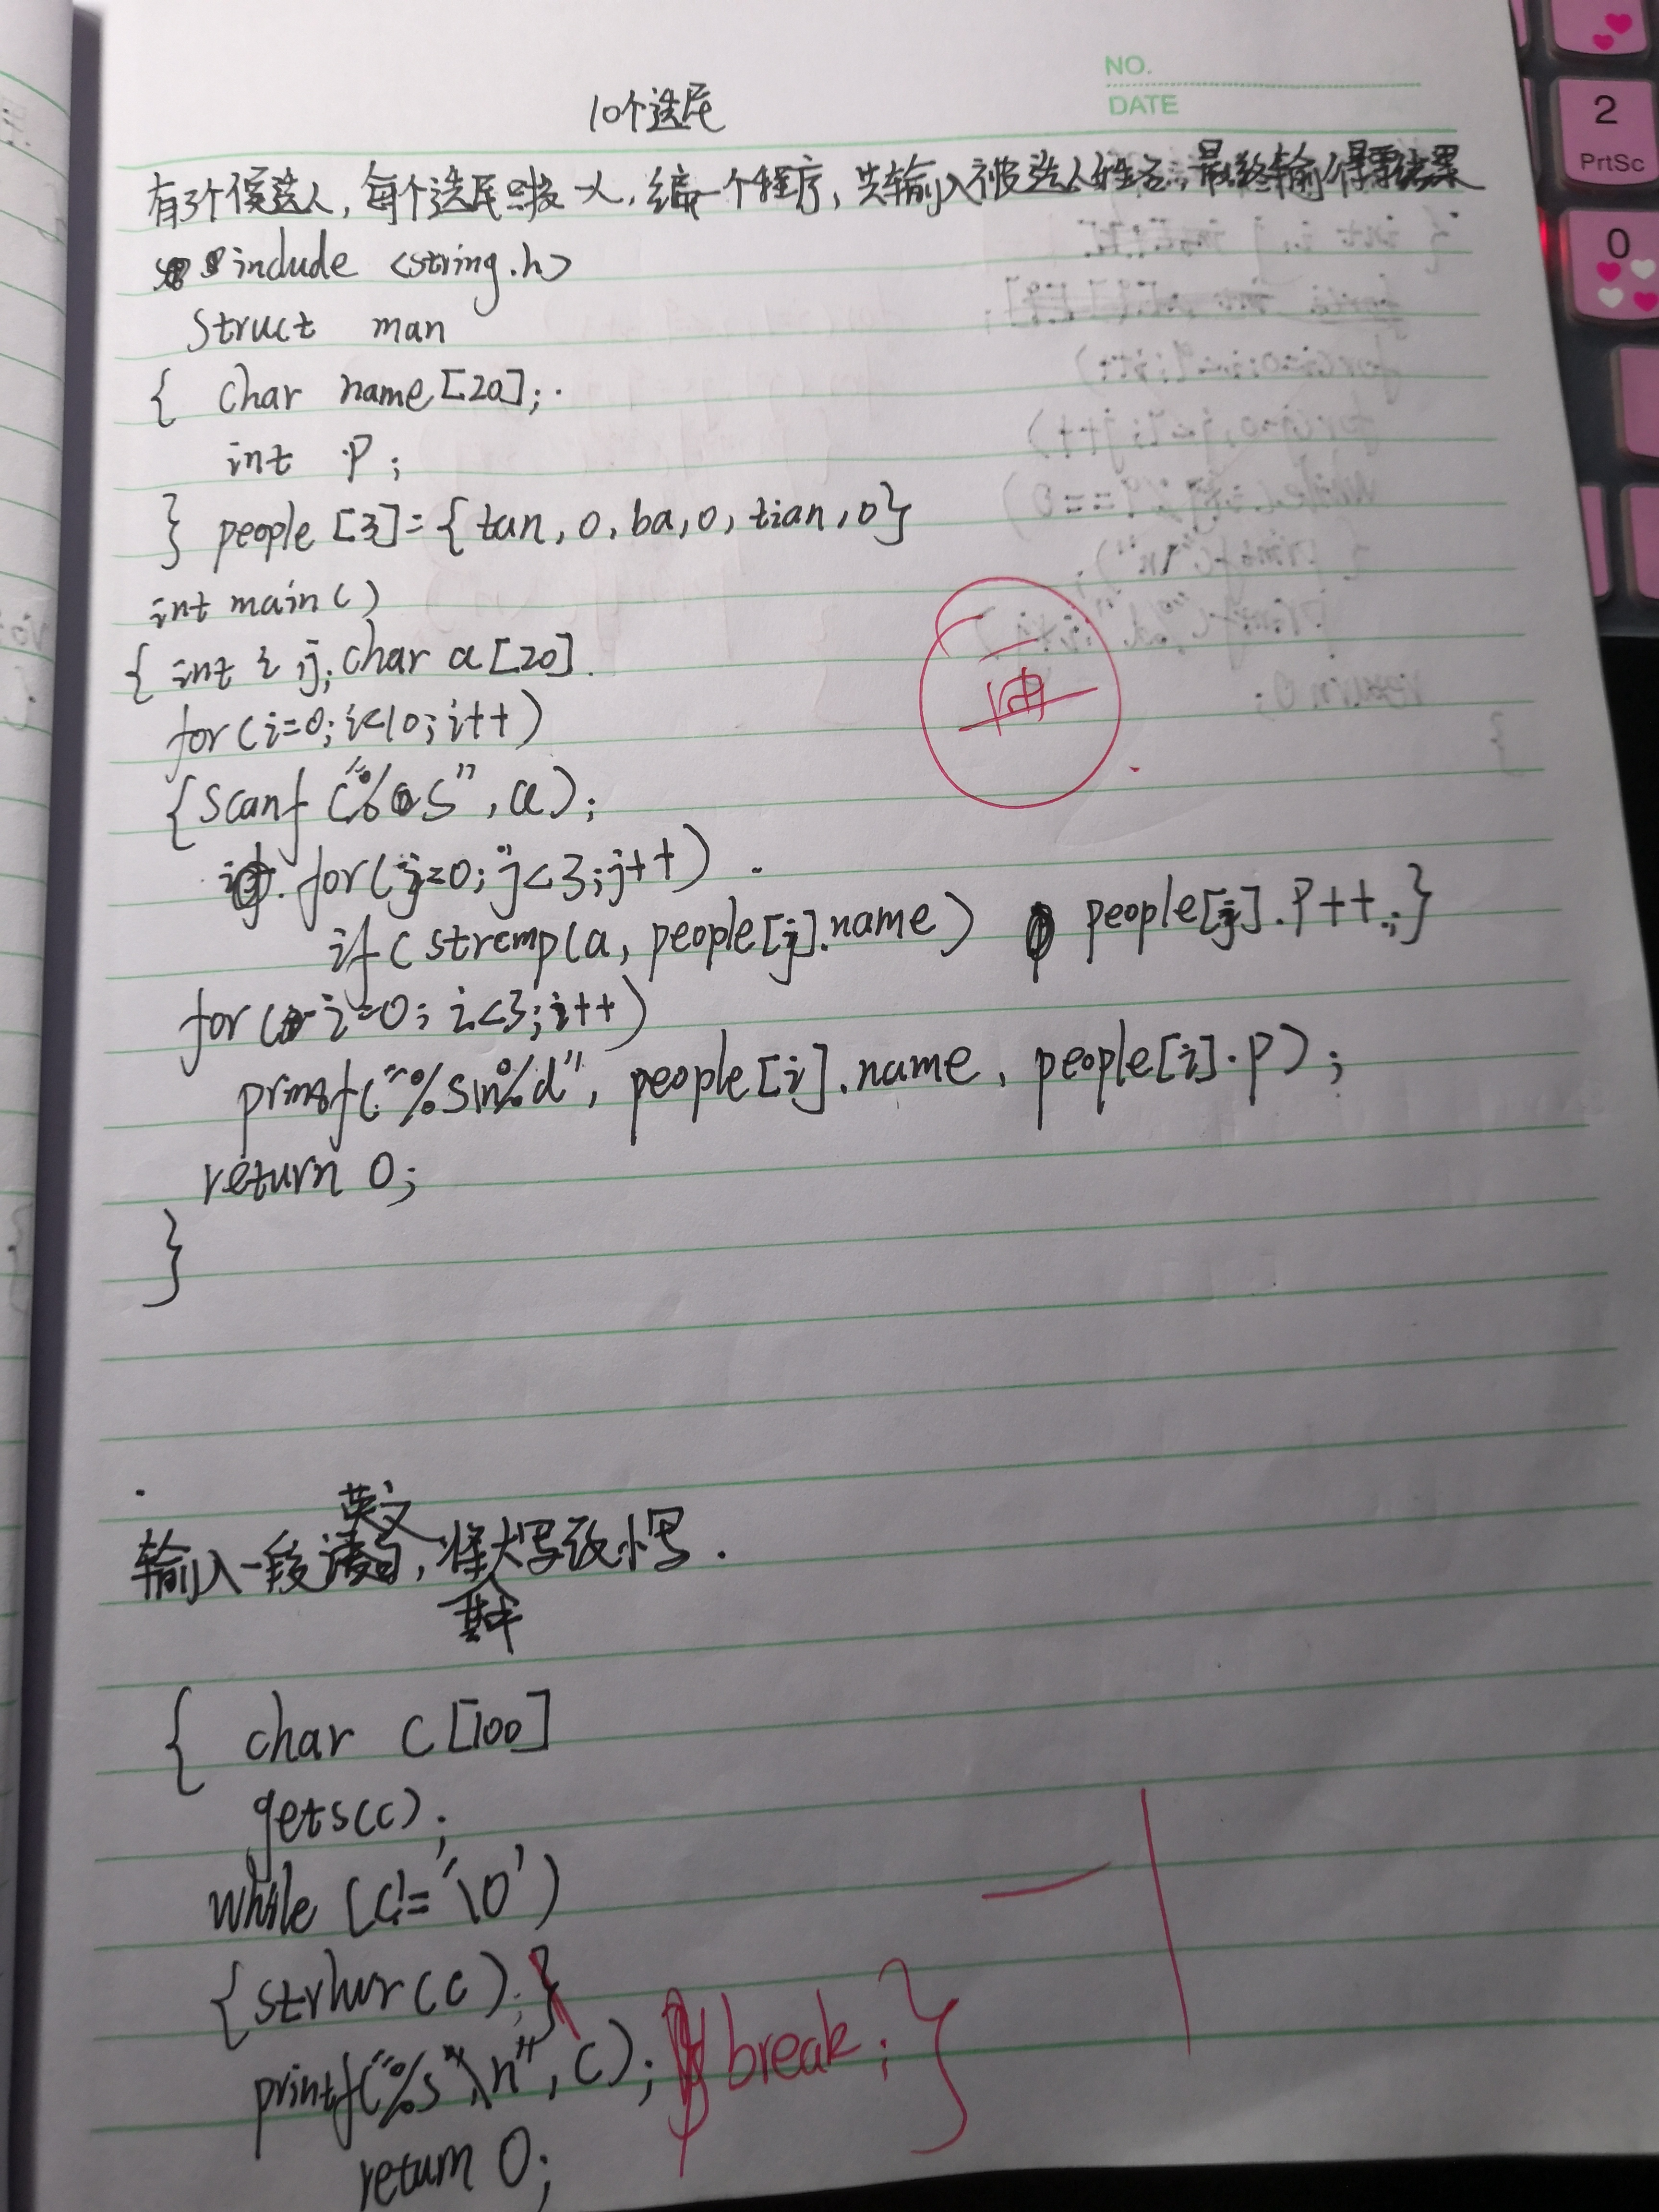 NO.
DATE
10个选民
有3个候选人,每个选民只投一人,编一个程序,共输入被选人姓名,最终输出得票结果
include <string.h>
struct man
{ char name[20];
int P;
} people[3]={tan,0,ba,0,tian,0}
int main()
{ int i,j;char a[20]
for(i=0;i<10;i++)
{scanf("%s",a);
for(j=0;j<3;j++)
if(strcmp(a,people[j].name) people[j].P++;}
for(i=0;i<3;i++)
printf("%s\n%d",people[i].name,people[i].P);
return 0;
}
英文
输入一段语句,将大写改小写.
其中
{ char c[100]
gets(c);
while(c!='\0')
{strlwr(c);}
printf("%s"\n",c); break;}
return 0;
2
PrtSc
0